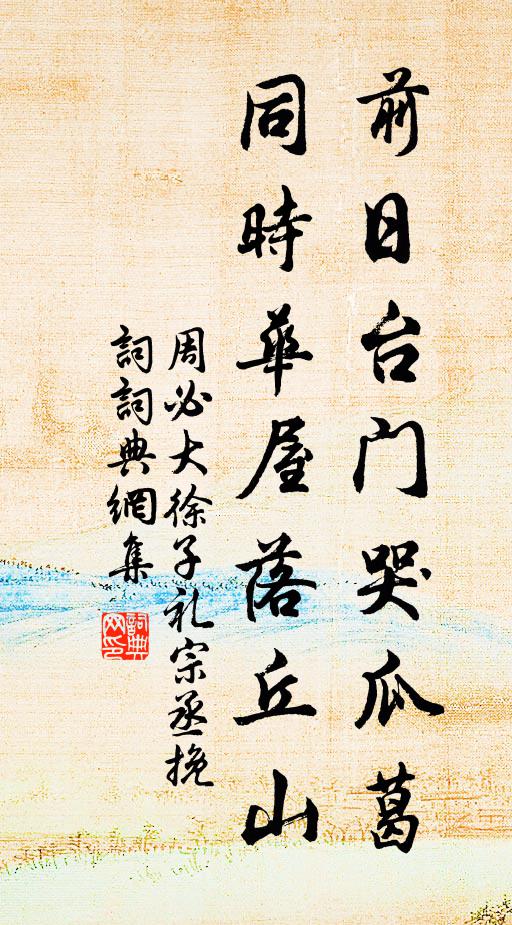 前日台门哭瓜葛
同時華屋落丘山
周必大徐子礼宗丞挽
詞詞典網集
詞典
网印